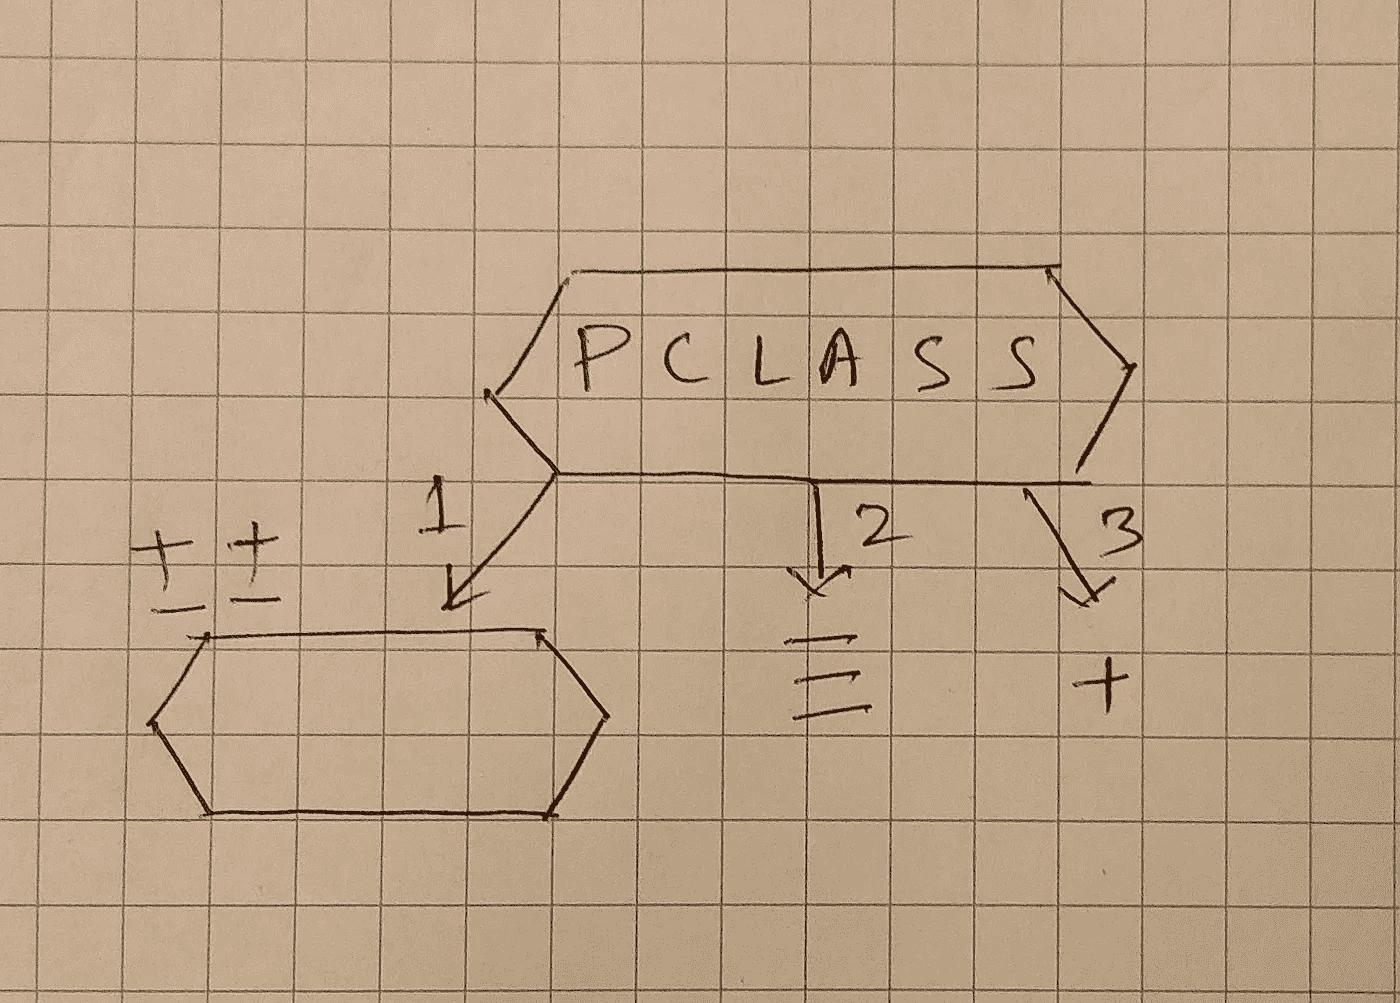 PCLASS
1 2 3
± ±
≡ +